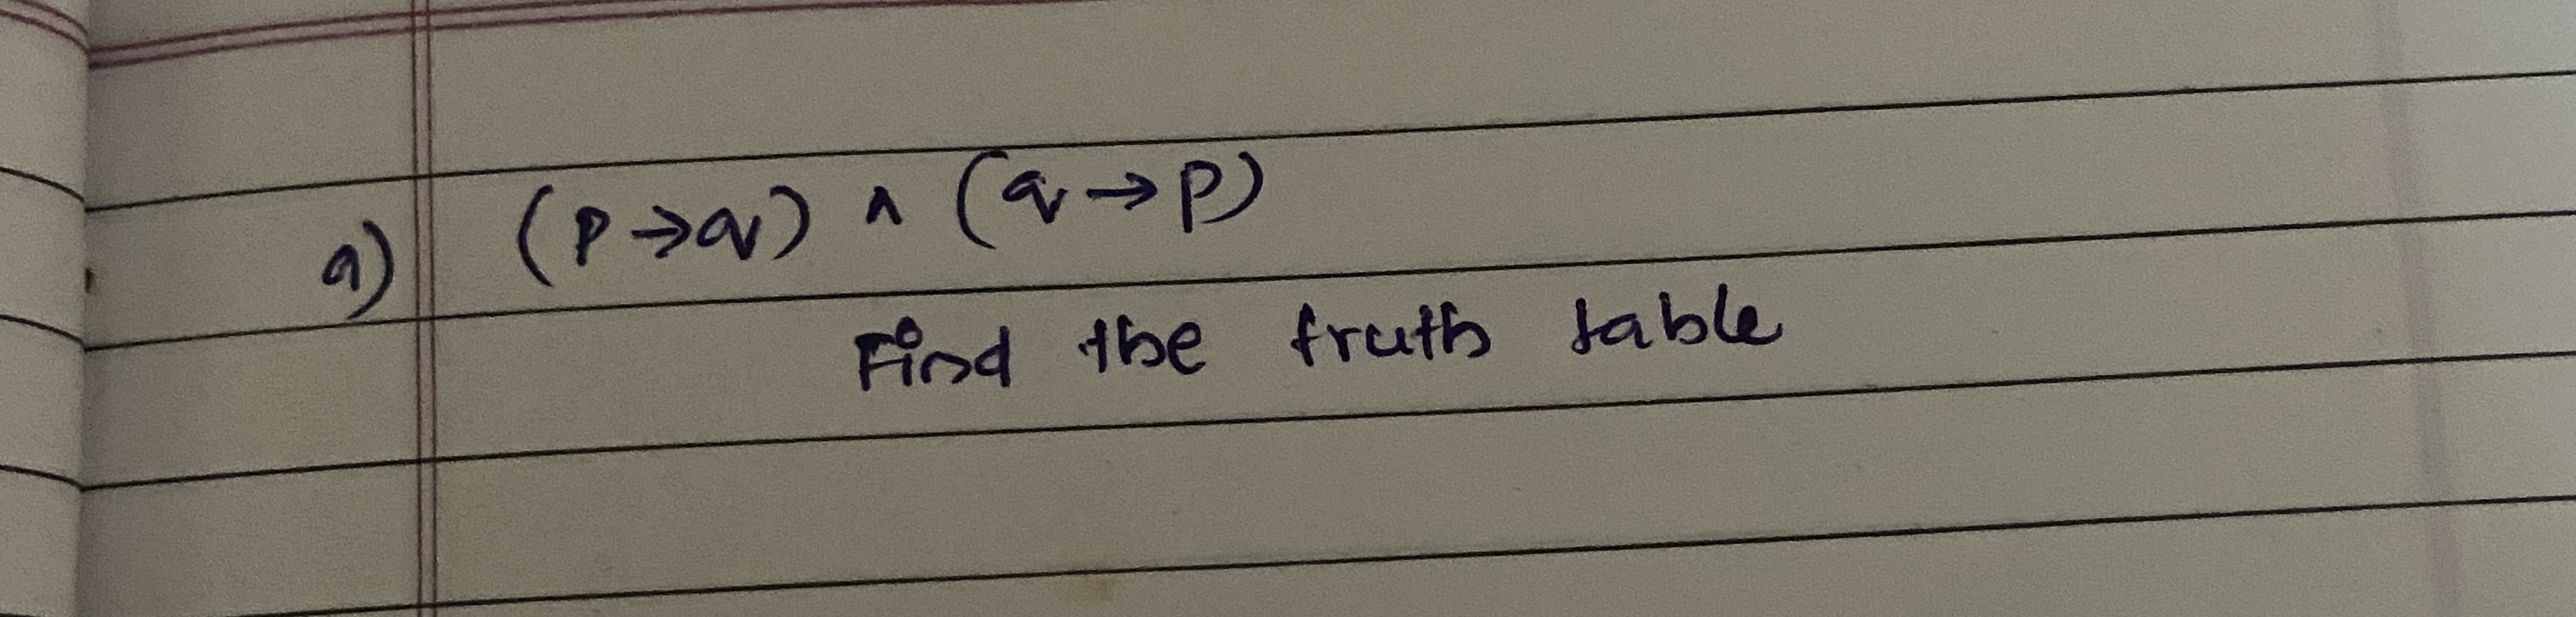 a) (p→q) ∧ (q→p)
Find the truth table